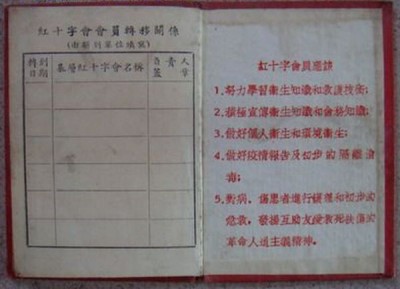 紅十字會會員轉移關係
(由新到單位填寫)
轉到日期
基層紅十字會名稱
負責人蓋章
紅十字會員應該
1.努力學習衛生知識和救護技術;
2.積極宣傳衛生知識和會務知識;
3.做好個人衛生和環境衛生;
4.做好疫情報告及初步的隔離消
毒;
5.對病、傷患者進行護理和初步的
急救,發揚互助友愛救死扶傷的
革命人道主義精神。